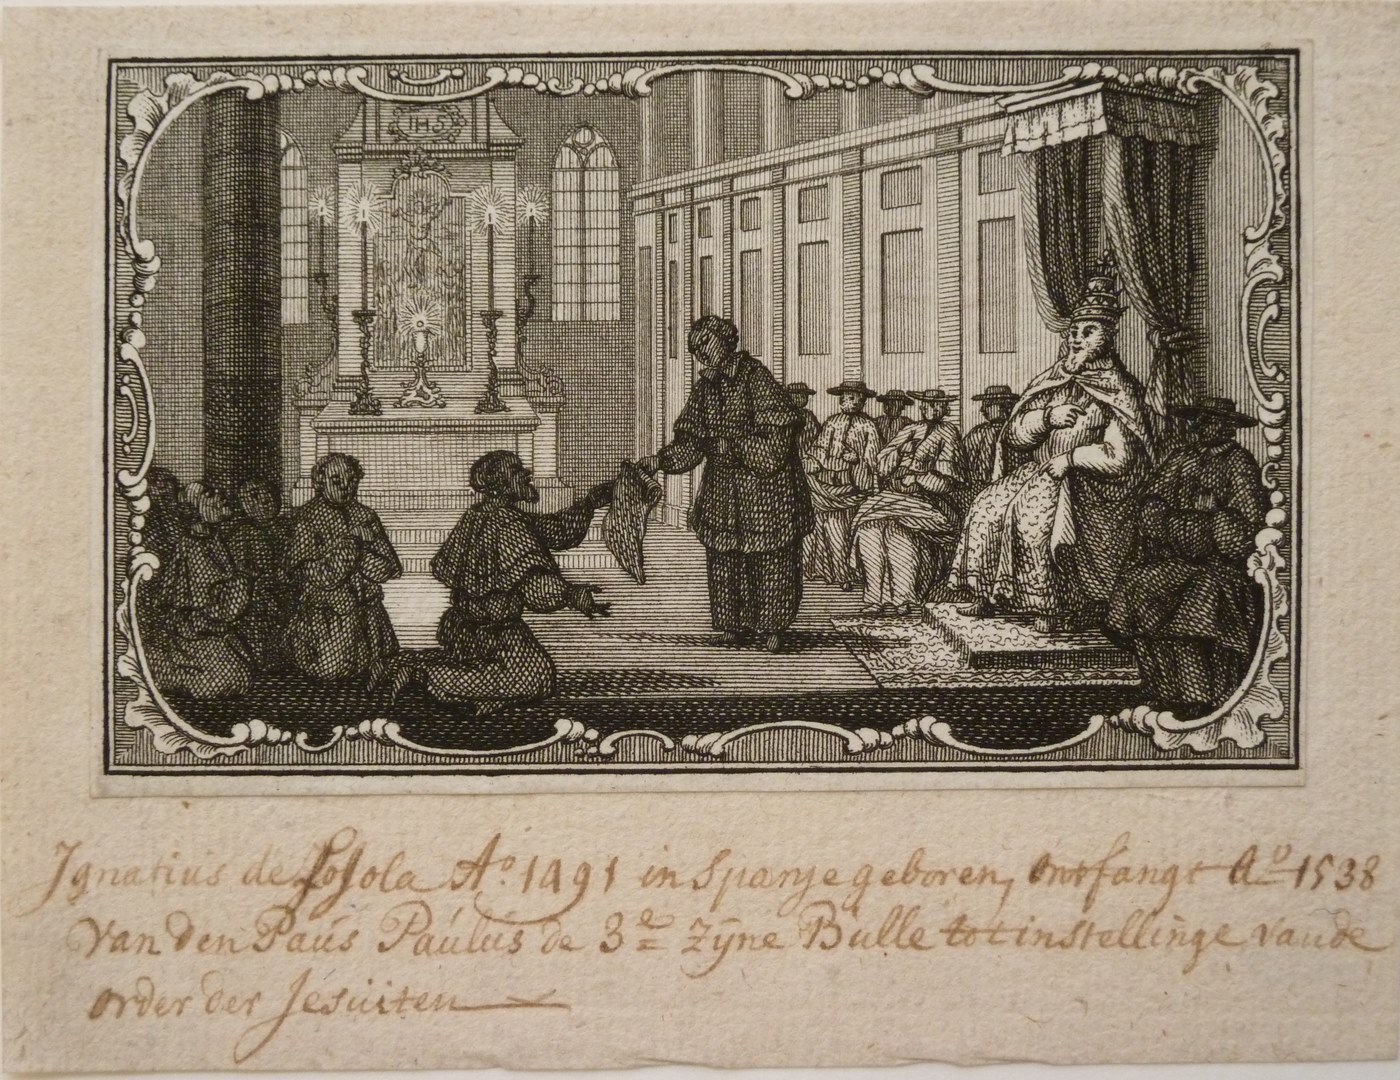 IHS
Ignatius de Loÿola Aº. 1491 in Spanje geboren, ontfangt Aº 1538
van den Paús Paúlús de 3e zÿne Bulle tot instellinge van de
order der Jesuiten